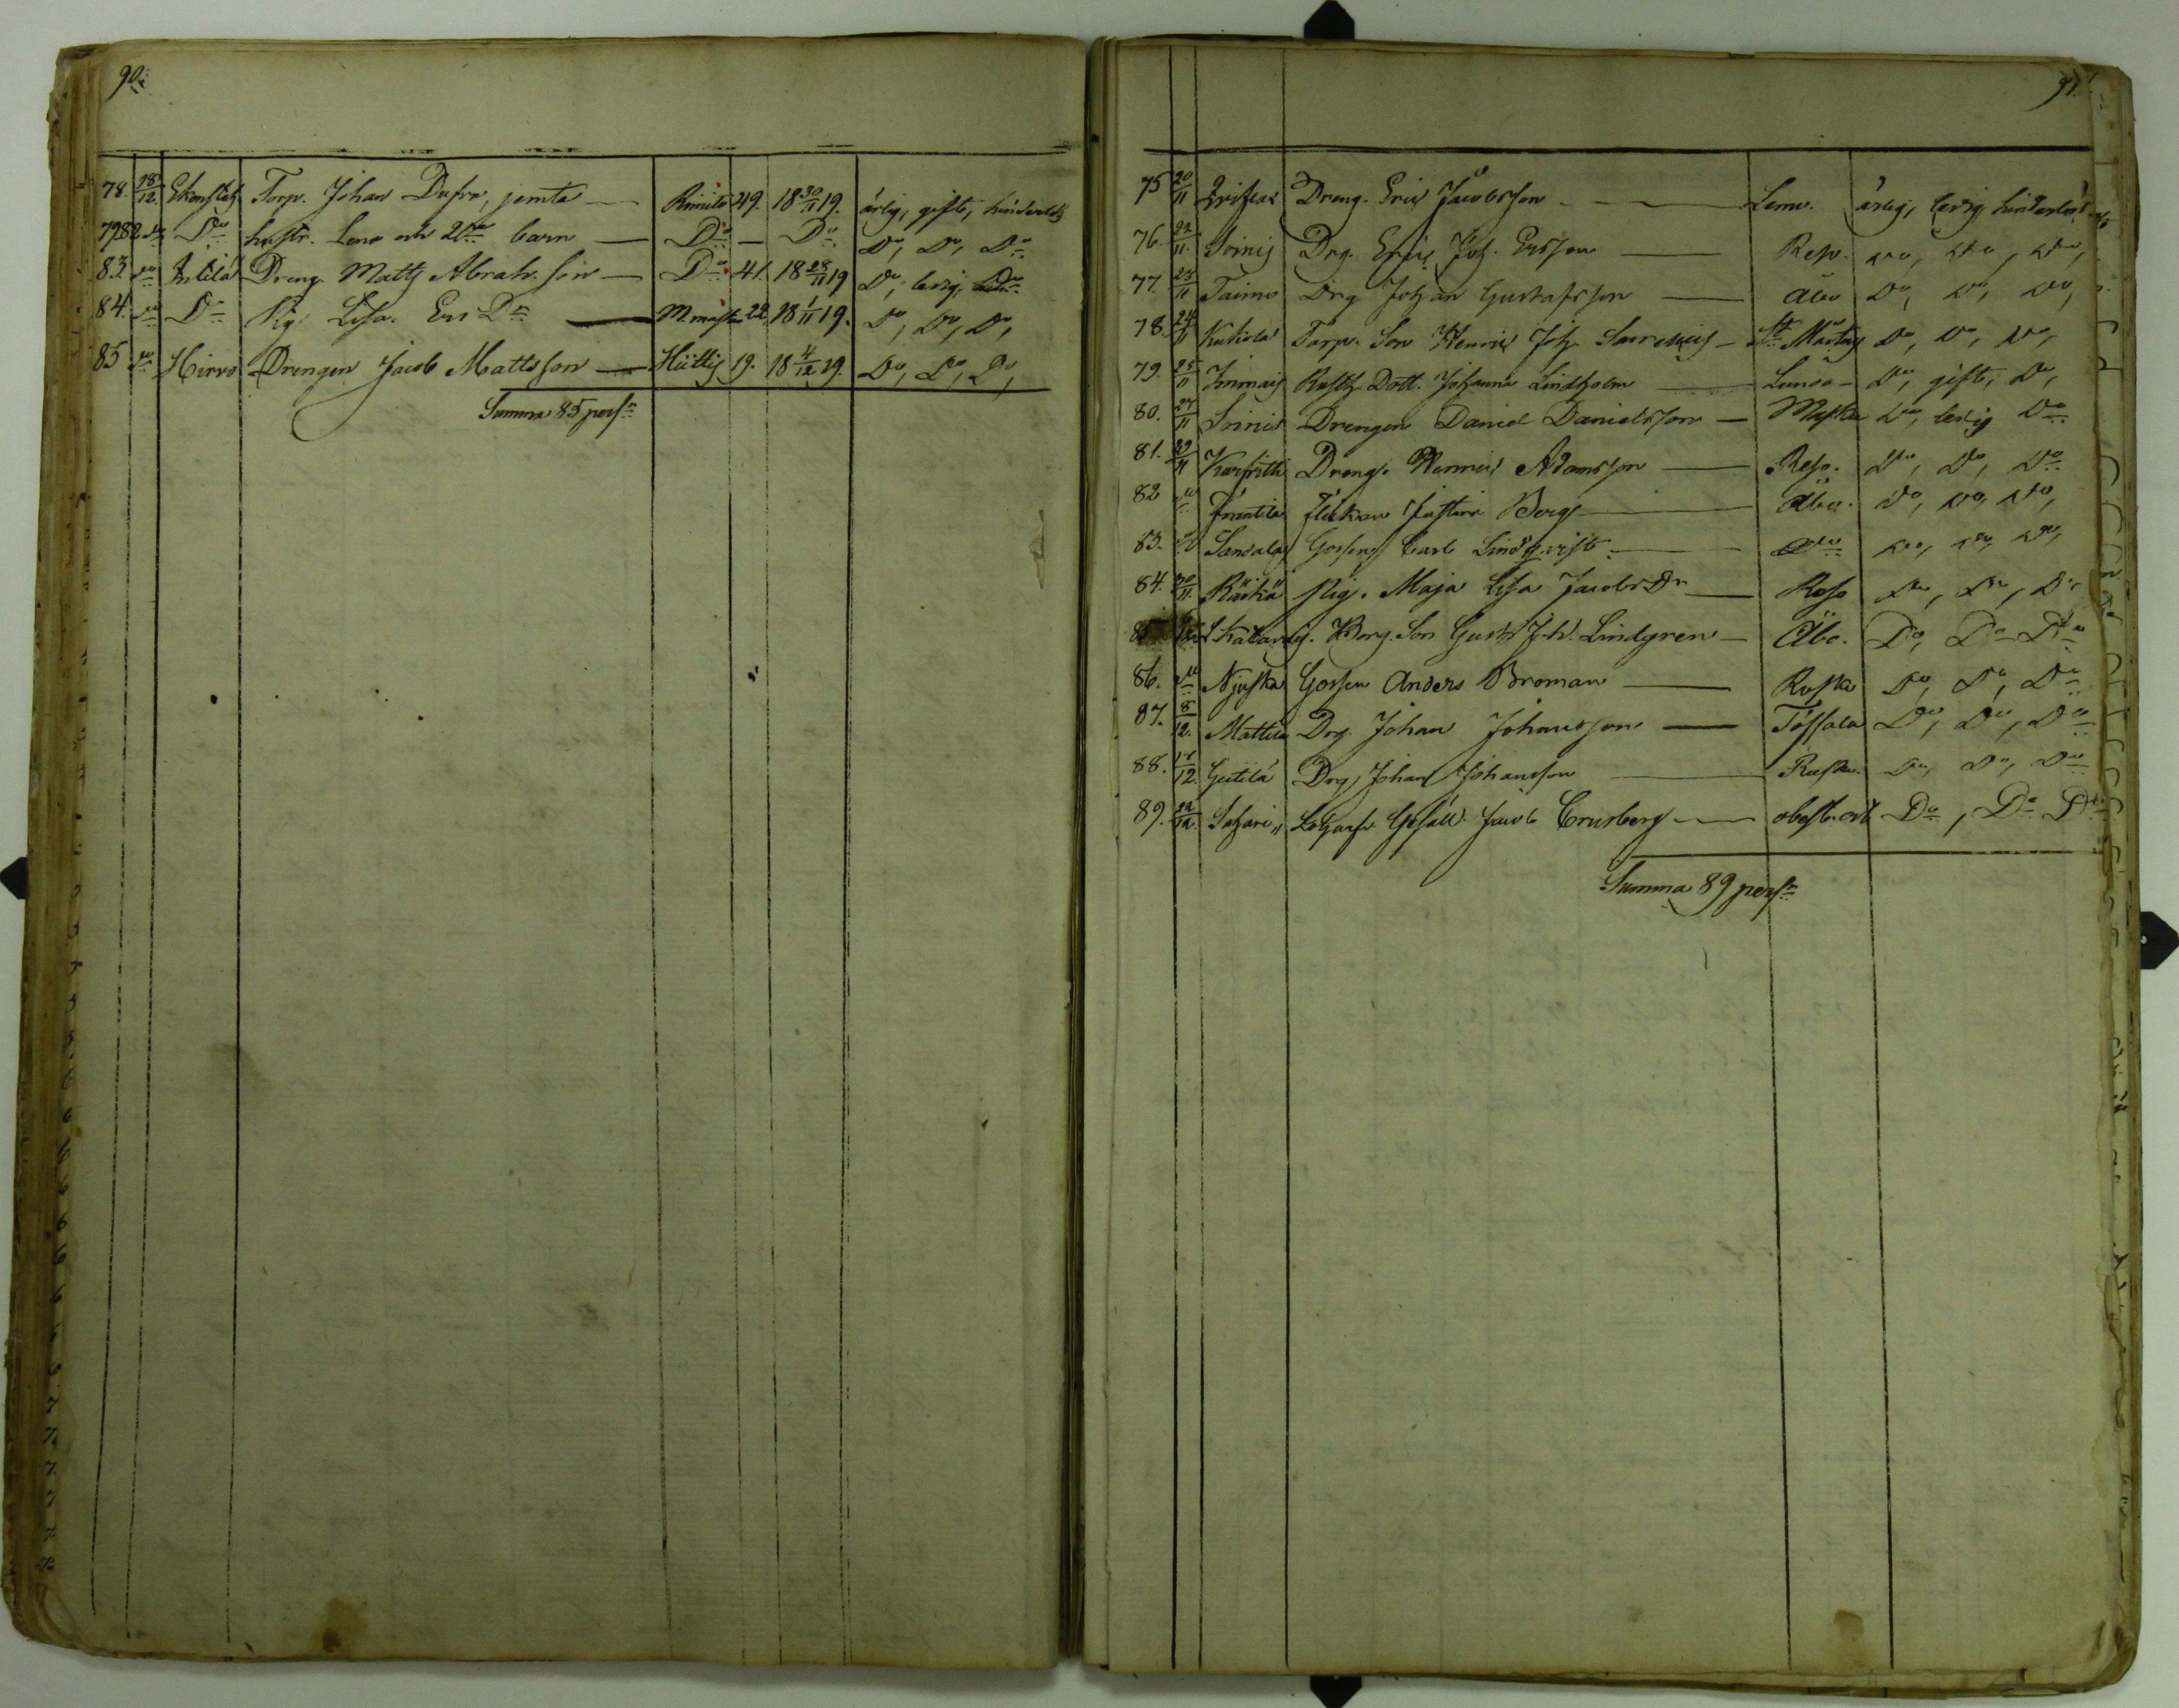 90.
78. 18/12. Torp. Johan Dufva, jemte — Rimito 49. 18 30/11 19. ärlig, gift,
79 82 do Do hustr. Lena och 2ne barn — Do — Do Do, Do, Do
83. do Do Dreng Matts Abrah. son — Do 41. 18 28/11 19 Do, ledig, Do
84. do Do Pig. Lisa Ers Dr — M.masku 22. 18 1/11 19. Do, Do, Do,
85 do Hirvo Drengen Jacob Mattsson — Hüttis 19. 18 4/12 19. Do, Do, Do,
Summa 85 pers.
91.
75 20/11 Dreng. Eric Jacobsson — Lemo. ärlig, ledig, hinderlös
76. 22/11 Soinis Drg. Eric Joh. Ersson — Reso. Do, Do, Do,
77. 23/11 Taimo Drg Johan Gustafsson — Åbo Do, Do, Do,
78. 24/11 Kukola Torp. Son Henric Joh. — St. Mårtens Do, Do, Do,
79. 25/11 Immais Rusth. Dott. Johanna Lindholm — Lundo — Do, gift, Do,
80. 27/11 Soinis Drengen Daniel Danielsson — Masku Do, ledig Do
81. 29/11 Karfritti Dreng. Henric Adamsson — Reso. Do, Do, Do
82 do Flickan Justina Berg — Åbo. Do, Do, Do,
83. do Sandala Gossen Carl Lindqvist — Do Do, Do, Do,
84. 30/11 Räukä Pig. Maja Lisa Jacobs Dr — Reso Do, Do, Do
85 Borg. Son Gust. Joh. Lindgren — Åbo. Do, Do Do
86. do Njuska Gossen Anders Broman — Rusko Do, Do, Do
87. 8/12. Mattila Drg. Johan Johansson — Töfsala Do, Do, Do
88. 17/12 Drg, Johan Johansson — Rusko. Do, Do, Do
89. 22/12. Gesäll. Jacob Crusberg — obest. ort Do, Do Do
Summa 89 pers.